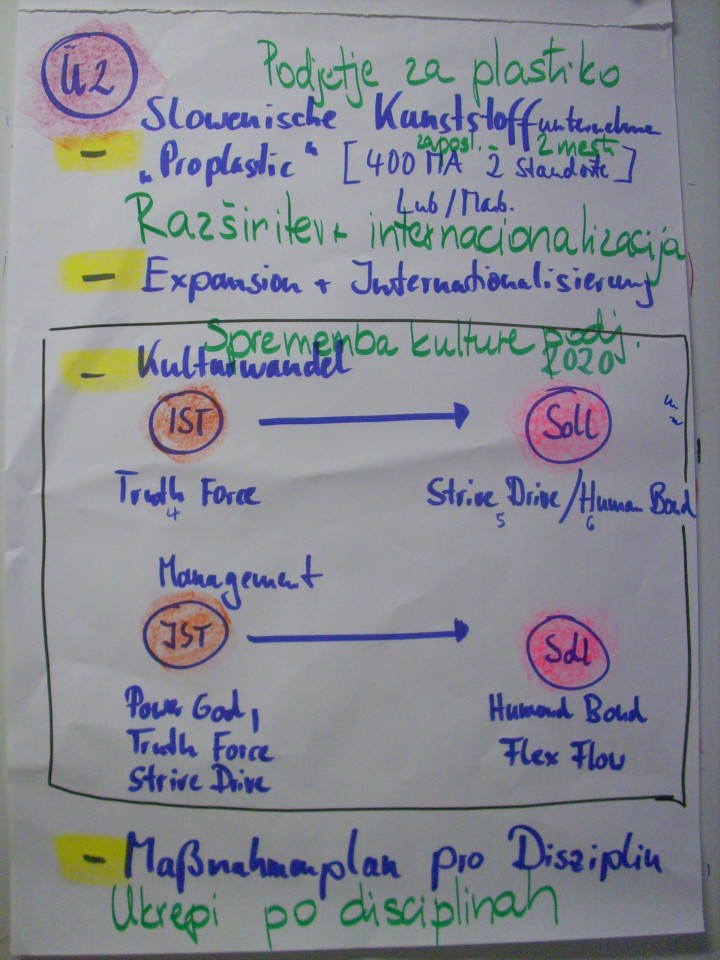 Ü2
Podjetje za plastiko
Slowenische Kunststoffunternehmen
zaposl. - 2 mesti
- „Proplastic“ [400 MA 2 Standorte]
Lub/Mab.
Razširitev + internacionalizacija
- Expansion + Internationalisierung
Sprememba kulture podj.
- Kulturwandel 2020
IST → Soll
Truth Force Strive Drive/Human Bond
4 5 6
Management
IST → Soll
Power God, Humand Bond
Truth Force Flex Flow
Strive Drive
- Maßnahmenplan pro Disziplin
Ukrepi po disciplinah